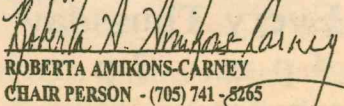 Roberta A. Amikons Carney
ROBERTA AMIKONS-CARNEY
CHAIR PERSON - (705) 741 - 5265